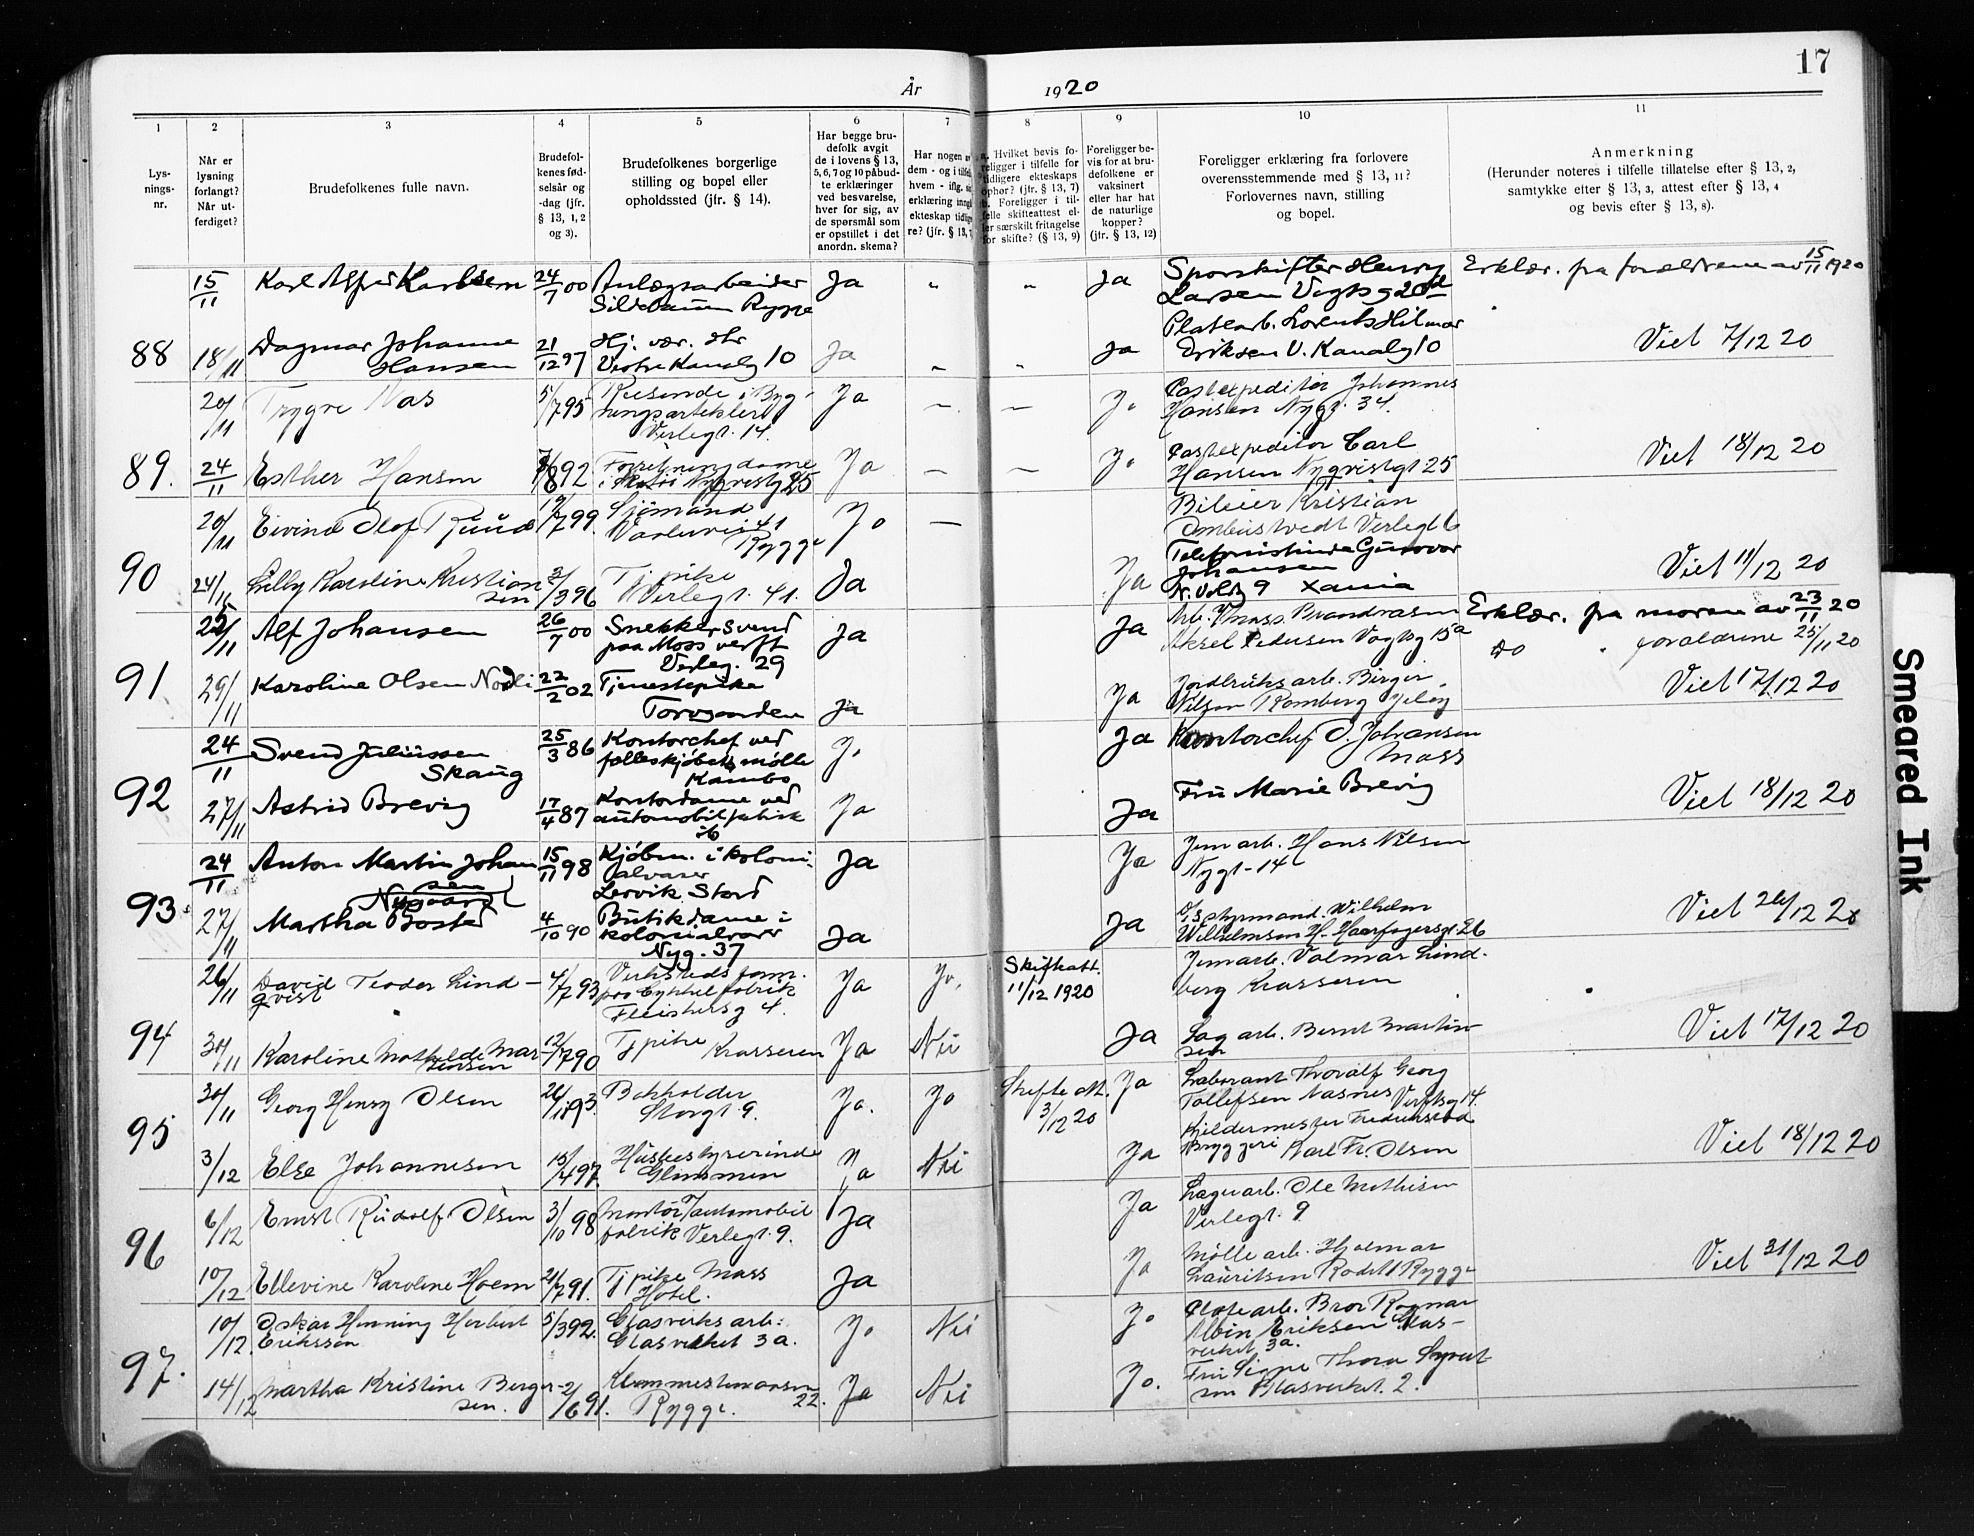 17
År 1920
1 2 3 4 5 6 7 8 9 10 11
Lys-
nings-
nr.
Når er
lysning
forlangt?
Når ut-
ferdiget?
Brudefolkenes fulle navn.
Brudefol-
kenes fød-
selsår og
-dag (jfr.
§ 13, 1, 2
og 3).
Brudefolkenes borgerlige
stilling og bopel eller
opholdssted (jfr. § 14).
Har begge bru-
defolk avgit
de i lovens § 13,
5, 6, 7 og 10 påbud-
te erklæringer
ved besvarelse,
hver for sig, av
de spørsmål som
er opstillet i det
anordn. skema?
Har nogen av
dem - og i tilfelle
hvem - iflg. sin
erklæring inngått
ekteskap tidlige-
re? (jfr. § 13, 7)
a. Hvilket bevis fo-
religger i tilfelle for
tidligere ekteskaps
ophør? (jfr. § 13, 7)
b. Foreligger i til-
felle skifteattest el-
ler særskilt fritagelse
for skifte? (§ 13, 9)
Foreligger be-
vis for at bru-
defolkene er
vaksinert
eller har hat
de naturlige
kopper?
(jfr. § 13, 12)
Foreligger erklæring fra forlovere
overensstemmende med § 13, 11?
Forlovernes navn, stilling
og bopel.
Anmerkning
(Herunder noteres i tilfelle tillatelse efter § 13, 2,
samtykke efter § 13, 3, attest efter § 13, 4
og bevis efter § 13, 8).
15/11 Karl Alfred Karlsen 24/7 00 Anlægsarbeider Ja " " Ja Sporskifter Henry Erklær. fra forældrene av 15/11 1920
Rygge Larsen Vogtsg
88 18/11 Dagmar Johanne 21/12 97 Hj. vær. Ja " " Ja Platearb. Lorents Hilmar
Hansen Vestre Kanalg 10 Eriksen V. Kanalg 10 Viet 7/12 20
20/11 Trygve 5/7 95 Reisende i Byg- Ja — — Ja Postexpeditør Johannes
ningsartikler Hansen Nygt. 34.
Verlegt. 14.
89. 24/11 Esther Hansen 92 Forretningsdame Ja — — Ja Postexpeditør Carl Viet 18/12 20
25 Hansen Nygvistgt 25
20/11 Eivind Olof Ruud 99. Sjømand Ja — Bileier Kristian
Varlevei 41 Verlegt 6
Rygge
90 24/11 Lilly Karoline Kristian 96 Tj pike Ja Ja Telefonistinde Gunvor Viet 11/12 20
sen Verlegt. 41. Johansen
N. Voldg 9 Xania
25/11 Alf Johansen 26/7 00 Snekkersvend Ja Ja Erklær. fra moren av 23/11 20
paa Moss verft Aksel Pedersen Vogtsg 15a do " forældrene 25/11 20
Verleg. 29
91 29/11 Karoline Olsen Nordli 22/2 02 Tjenestepike Ja Ja Jordbruksarb. Birger Viet 17/12 20
Nilsen Romberg Jeløy
24/11 Svend Juliussen 25/3 86 Kontorchef ved Ja Ja Kontorchef O. Johansen
Skaug felleskjøbets mølle Moss
Kambo
92 27/11 Astrid Brevig 17/4 87 Kontordame ved Ja Ja Fru Marie Brevig Viet 18/12 20
automobilfabrik
24/11 Anton Martin Johan 15/11 98 Kjøbm. i koloni- Ja Ja Jernarb. Hans Nilsen
sen alvarer Nygt-14
Nygaard Lervik Stord
93 27/11 Martha Bosted 4/10 90 Butikdame i Ja Ja styrmand Wilhelm Viet 20
kolonialvarer Wilhelmsen H. Haarfagersgt 26
Nyg. 37
26/11 David Teodor Lind- 4/7 93 Ja Ja, Skifteatt. Jernarb. Valmar Lind-
qvist cykkelfabrik 11/12 1920 berg Krosseren
Fleischersg 4.
94 30/11 Karoline Mathilde Mar- 12/7 90 Tj pike Krosseren Ja Nei Ja Sag arb. Bernt Martin Viet 17/12 20
tinsen sen
30/11 Georg Henry Olsen 93 Bokholder Ja. Ja Skifte att. Ja Laborant Thoralf Georg
Storgt. 9. 3/12 20 Tollefsen Næsnes Verftsg 14.
95 3/12 Else Johannesen 15/4 97. Husbestyrerinde Ja Nei Ja Kjeldermester Fredrikstad Viet 18/12 20
Glimmen Bryggeri Karl Fr. Olsen
6/12 Ernst Rudolf Olsen 3/10 98 Montør automobil Ja Ja Lagerarb. Ole Mathisen
fabrik Verlegt. 9. Verlegt. 9
96 10/12 Ellevine Karoline Hoem 91. Tj pike Moss Ja Ja Mølle arb. Hjalmar Viet 31/12 20
Hotel. Lauritsen Rygge
10/12 Oskar Henning Herbert 5/3 92. Glasverksarb: Ja Nei Ja Bror Ragnar
Eriksson Glasverket 3a. Albin Eriksen Glas-
verket 3a.
97. 14/12 Martha Kristine Berger- 2/6 91. Ja Nei Ja. Fru Signe Thora Syvert-
sen. Rygge. 22. sen Glasverket. 2.
Smeared Ink